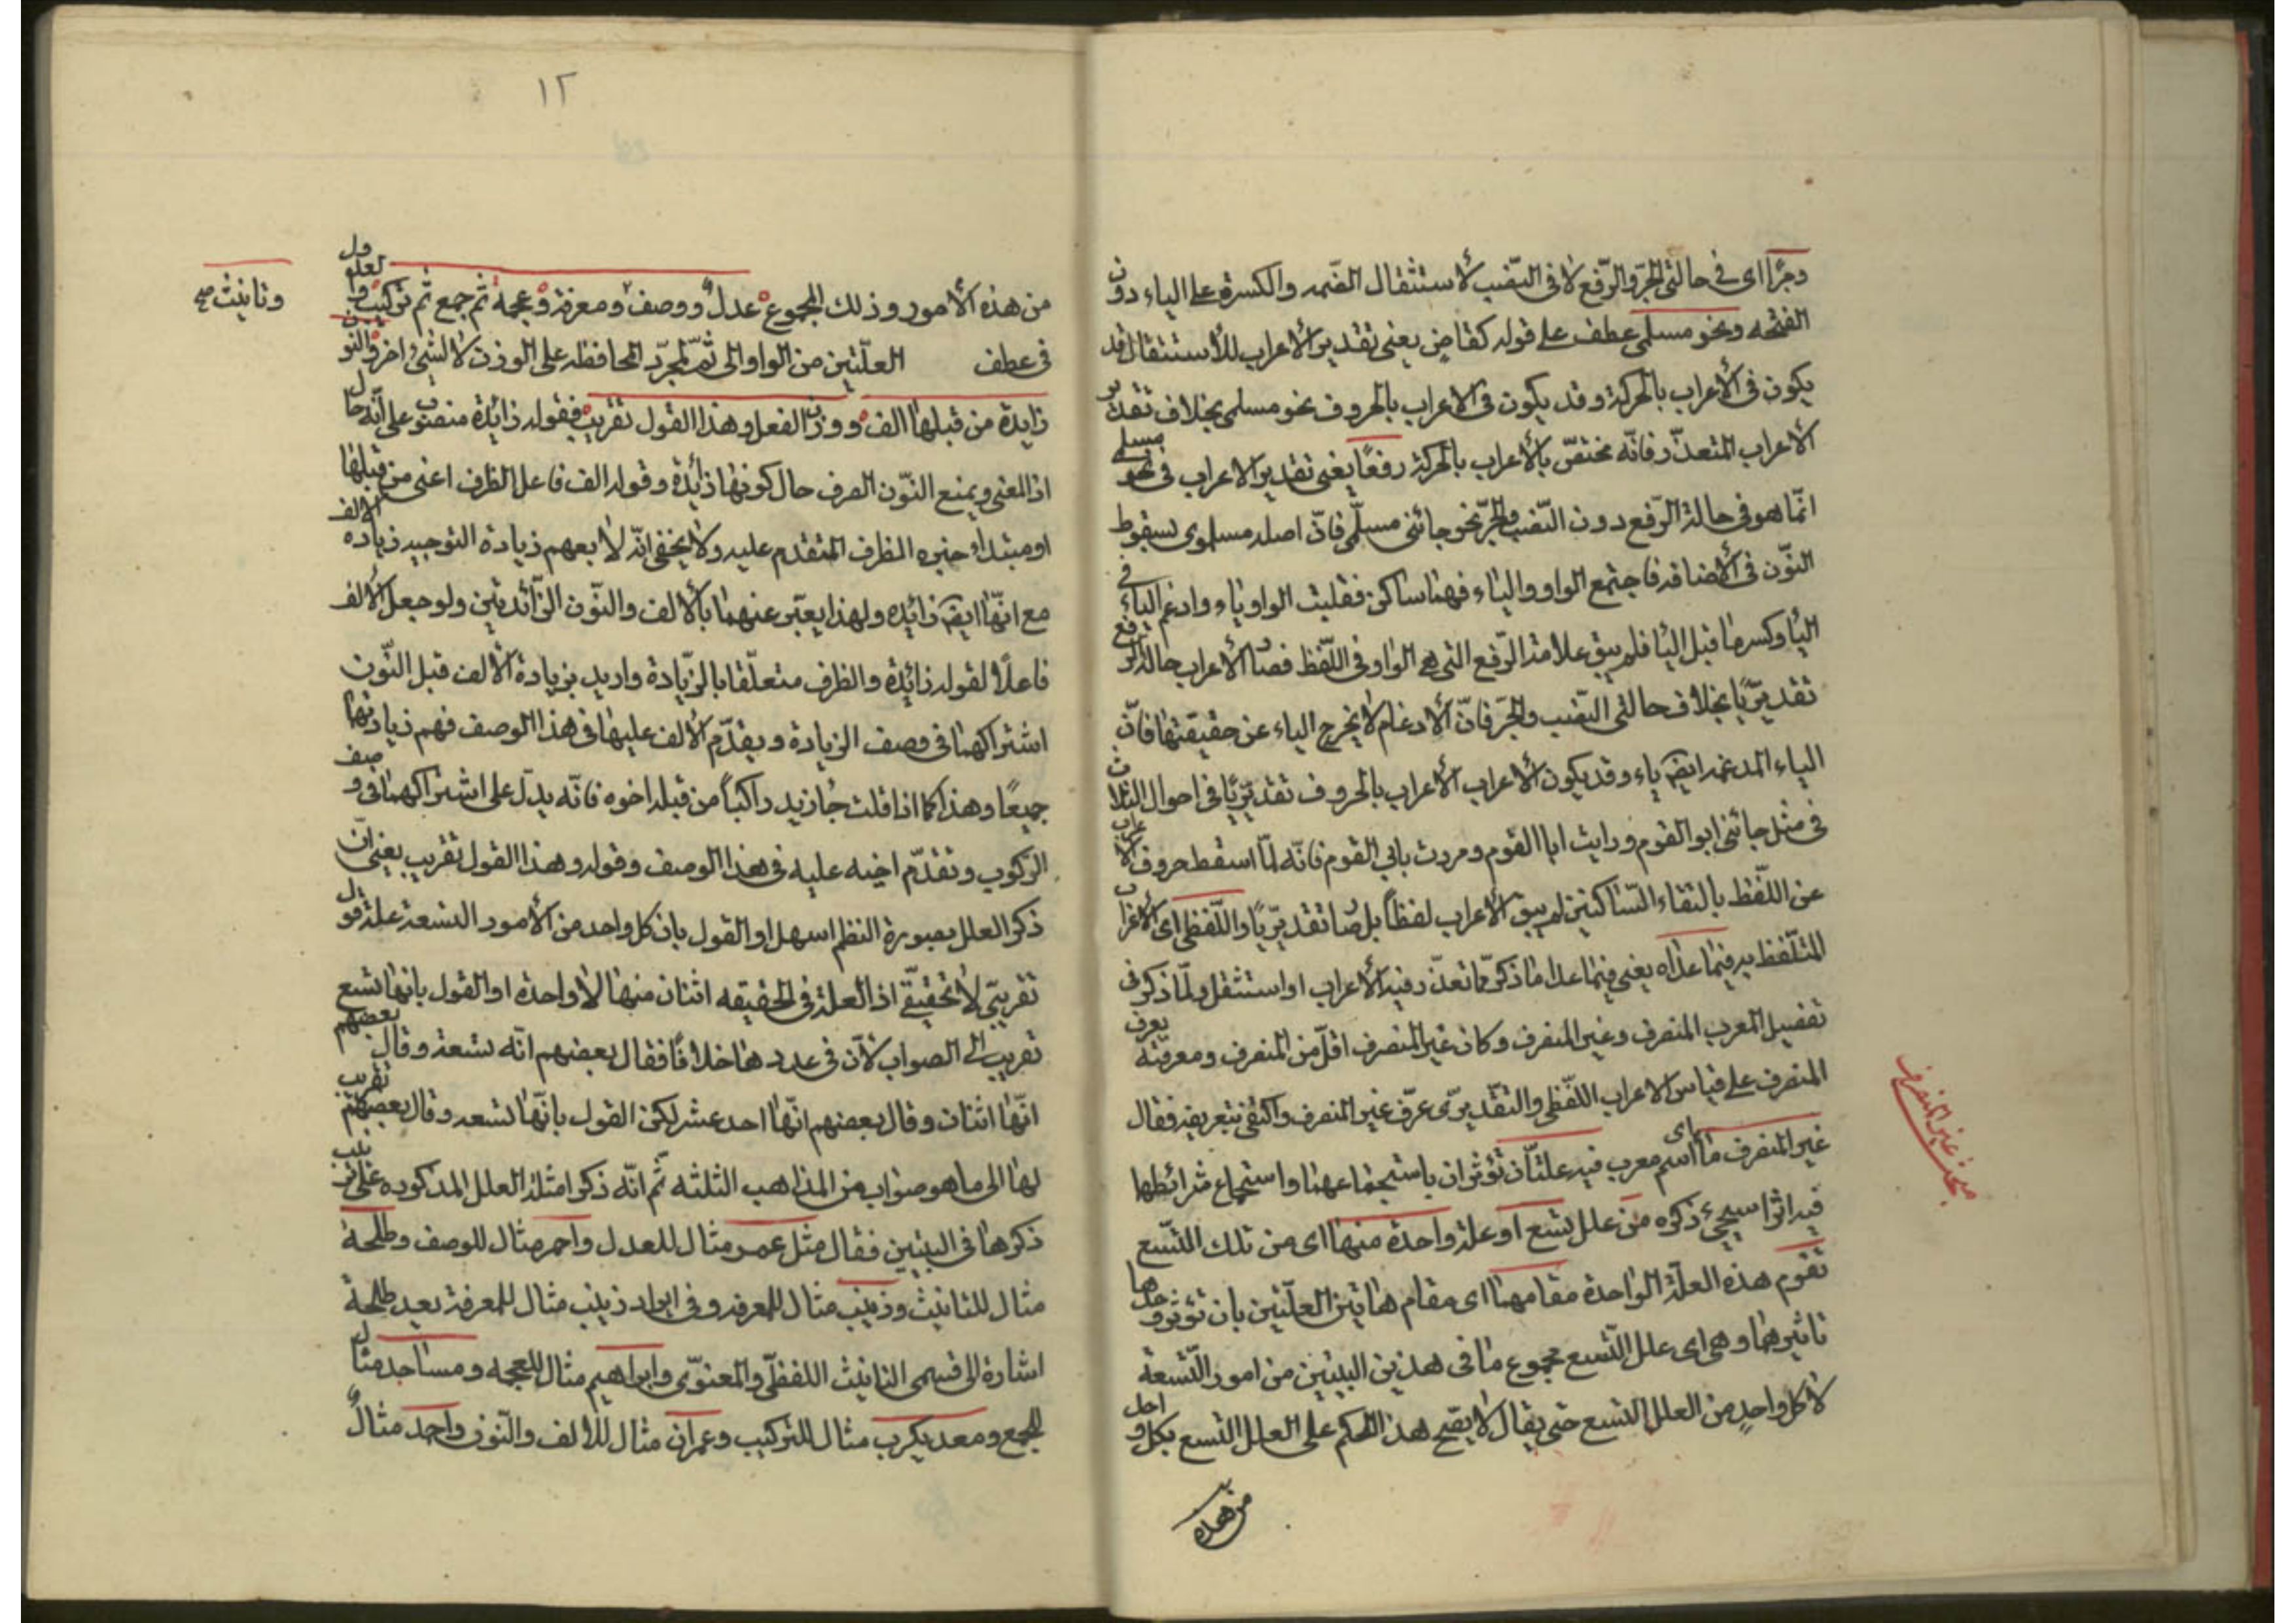 وجرّا اى فى حالتى الجرّ والرّفع لا فى النّصب لأستثقال الضّمه والكسرة على الياء دون
الفتحه ونحو مسلمى عطف على قوله كقاضٍ يعنى تقدير الأعراب للأستثقال قد
يكون فى الأعراب بالحركة وقد يكون فى الاعراب بالحروف نحو مسلمى بخلاف تقدير
الاعراب المتعذّر فانّه مختصّ بالأعراب بالحركة رفعًا يعنى تقدير الاعراب فى نحو مسلمى
انّما هو فى حالة الرّفع دون النّصب والجرّ نحو جائنى مسلمّى فانّ اصله مسلموى بسقوط
النّون فى الأضافه فاجتمع الواو والياء فهنا ساكن فقلبت الواو ياء وادغم الياء فى
اليا وكسر ما قبل اليا فلم يبق علامة الرّفع التى هى الواو فى اللّفظ فصار الأعراب حالة الرفع
تقديريّا بخلاف حالتى النّصب والجرّ فانّ الأدغام لا يخرج الياء عن حقيقتها فانّ
الياء المدغمه ايضا ياء وقد يكون الأعراب الأعراب بالحروف تقديريّا فى احوال الثلاث
فى مثل جائنى ابو القوم ورايت ابا القوم ومررت بابى القوم فانّه لمّا اسقط حروف الاعراب
عن اللّفظ بالتقاء السّاكنين لم يبق الأعراب لفظاً بل صار تقديريّا واللّفظى اى الاعراب
المتلّفظ به فيما عداه يعنى فيما عدا ما ذكر ممّا تعذّر فيه الأعراب او استثقل ولمّا ذكر فى
تفصيل المعرب المنصرف وغير المنصرف وكان غير المنصرف اقلّ من المنصرف ومعرفته يعرف
المنصرف على قياس الاعراب اللّفظى والتقديرّى عرّف غير المنصرف واكتفى بتعريفه فقال
غير المنصرف ما اى اسم معرب فيه علّتان تؤثران باستجماعهما واستجماع شرائطها
فيه اثرا سيجىء ذكره من علل تسع او علة واحدة منها اى من تلك التّسع
تقوم هذه العلّة الواحدة مقامهما اى مقام هاتين العلّتين بان تؤثر وحدها
تاثيرهما وهى اى علل التّسع مجموع ما فى هذين البيتين من امور التّسعة
لا كل واحدٍ من العلل التسع حتى يقال لا يصّح هذا الحكم على العلل التسع بكل واحد
من هذه
مبحث غير المنصرف
١٢
من هذه الأمور وذلك المجموع عدل ووصف ومعرفة وعجمة ثم جمع ثم تركيب والعدول
وتانيث صح
فى عطف العلّتين من الواو الى ثمّ لمجرّد المحافظه على الوزن لا لشىء اخر والنون
زايدة من قبلها الف ووزن الفعل وهذا القول تقريب فقوله زائدة منصوب على انّه حال
اذ المعنى ويمنع النّون الصرف حال كونها زائدة وقوله الف فاعل الظرف اعنى من قبلها
او مبتدأ خبره الظرف المتقدم عليه ولا يخفى انّه لا يعهم زيادة التوجيه زيادة الالف
مع انّها ايضا زائده ولهذا يعبّر عنهما بالألف والنّون الزّائدتين ولو جعل الالف
فاعلًا لقوله زائدة والظرف متعلّقا بالزّيادة واريد بزيادة الألف قبل النّون
اشتراكهما فى وصف الزيادة وبقدّم الألف عليها فى هذا الوصف فهم زيادتها
جميعًا وهذا كما اذا قلت جا زيد راكباً من قبله اخوه فانّه يدلّ على اشتراكهما فى وصف
الركوب وتقدّم اخيه عليه فى هذا الوصف وقوله وهذا القول تقريب يعنى انّ
ذكر العلل بصورة النظم اسهل او القول بان كل واحد من الأمور التسعة علة قول
تقريبّى لا تحقيقّى اذ العلة فى الحقيقه اثنان منها لا واحدة او القول بانها تسع
تقريب الى الصواب لأنّ فى عددها خلافًا فقال بعضهم انّه تسعة وقال بعضهم
انّها اثنان وقال بعضهم انّها احد عشر لكن القول بانّها تسعه وقال بعضهم تقريب
لها الى ما هو صواب من المذاهب الثلثه ثم انّه ذكر امثلة العلل المذكوره على ترتيب
ذكرها فى البيتين فقال مثل عمر مثال للعدل واحمر مثال للوصف وطلحة
مثال للتانيث وزينب مثال للمعرفه وفى ايراد زينب مثال للمعرفة بعد طلحة
اشارة الى قسمى التانيث اللفظّى والمعنوّى وابراهيم مثال للعجمه ومساجد مثال
للجمع ومعديكرب مثال للتركيب وعمران مثال للألف والنّون واحمد مثال